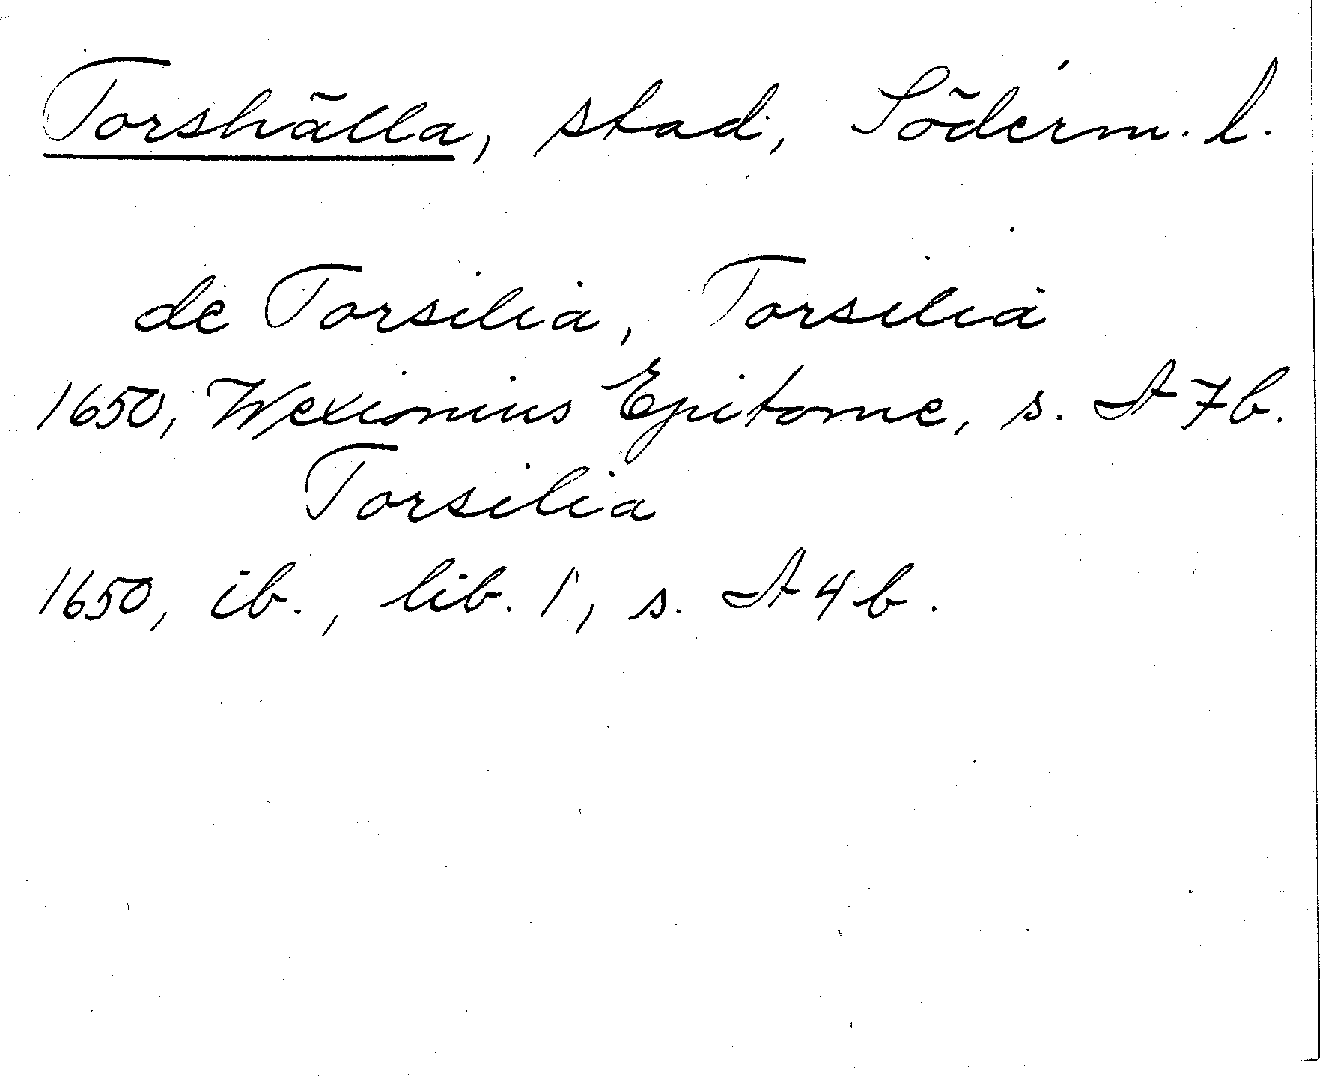 Torshälla, stad, Söderm. l.
de Torsilia, Torsilia
1650, Wexionius Epitome, s. A 7 b.
Torsilia
1650, ib., lib. 1, s. A 4 b.